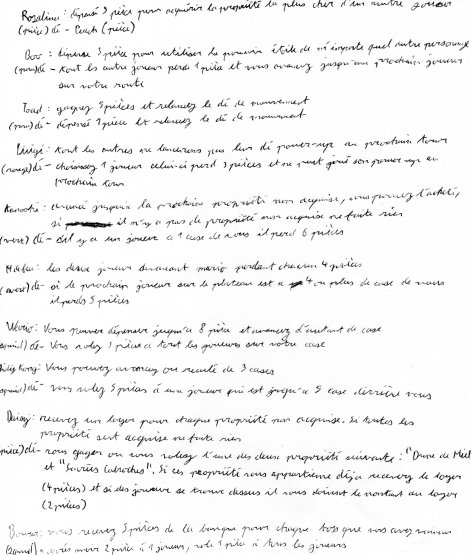 Rosalina: dépensé 5 pièce pour acquérir la propriété la plus cher d'un autre joueur
(pièce) dé - (pièce)
Boo: dépense 5 pièce pour utiliser le pouvoir étoile de n'importe quel autre personnage
dé - tout les autre joueur perde 1 pièce et vous avancez jusqu'au prochain joueur
sur votre route
Toad: gagnez 5 pièces et relancez le dé de mouvement
dé - dépensé 1 pièce et relancez le dé de mouvement
Luigi: tout les autres ne lancerons pas leur dé power-up au prochain tour
(rouge) dé - choisissez 1 joueur celui-ci perd 3 pièces et ne peut joué son power-up au
prochain tour
avancé jusqu'a la prochain propriété non acquise, vous pouvez l'acheté,
si il n'y a pas de propriété non acquise ne faite rien
(vert) dé - s'il y a un joueur a 1 case de vous il perd 6 pièces
les deux joueur devancant mario perdent chacun 4 pièces
dé - si le prochain joueur sur le plateau est a 4 ou plus de case de vous
il perds 5 pièces
Wario: Vous pouvez dépenser jusqu'a 8 pièce et avancez d'autant de case
dé - Vous volez 1 pièces a tout les joueurs sur votre case
Vous pouvez avancez ou reculé de 3 cases
dé - vous volez 5 pièces a une joueur qui est jusqu'a 5 case derrière vous
Daisy: recevez un loyer pour chaque propriété non acquise. Si toutes les
propriété sont acquise ne faite rien
dé - vous gagez ou vous volez l'une des deux propriété suivante: "Dune de Miel"
et Si ces propriété vous appartienne déja recevez le loyer
(4 pièces) et si des joueurs se trouve dessus il vous doivent le montant du loyer
(2 pièces)
Bowser: vous recevez 5 pièces de la banque pour chaque fois que vous avez
2 pièce à 1 joueur, vole 1 pièce à tous les joueurs